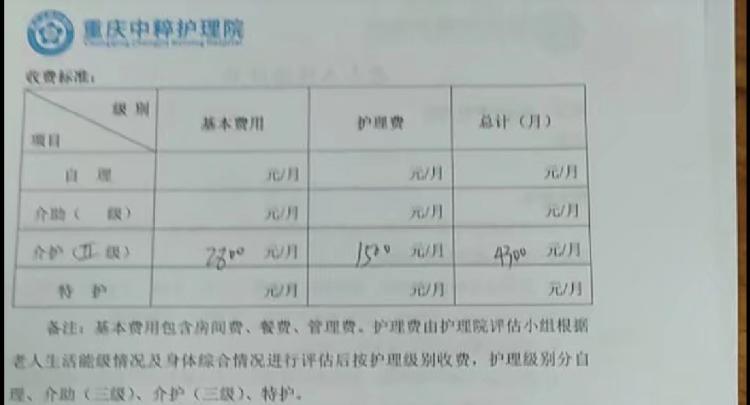 重庆中粹护理院
收费标准：
级别
项目 基本费用 护理费 总计（月）
自 理 元/月 元/月 元/月
介助（ 级） 元/月 元/月 元/月
介护（Ⅱ级） 2800 元/月 1500 元/月 4300 元/月
特 护 元/月 元/月 元/月
备注：基本费用包含房间费、餐费、管理费。护理费由护理院评估小组根据
老人生活能级情况及身体综合情况进行评估后按护理级别收费，护理级别分自
理、介助（三级）、介护（三级）、特护。